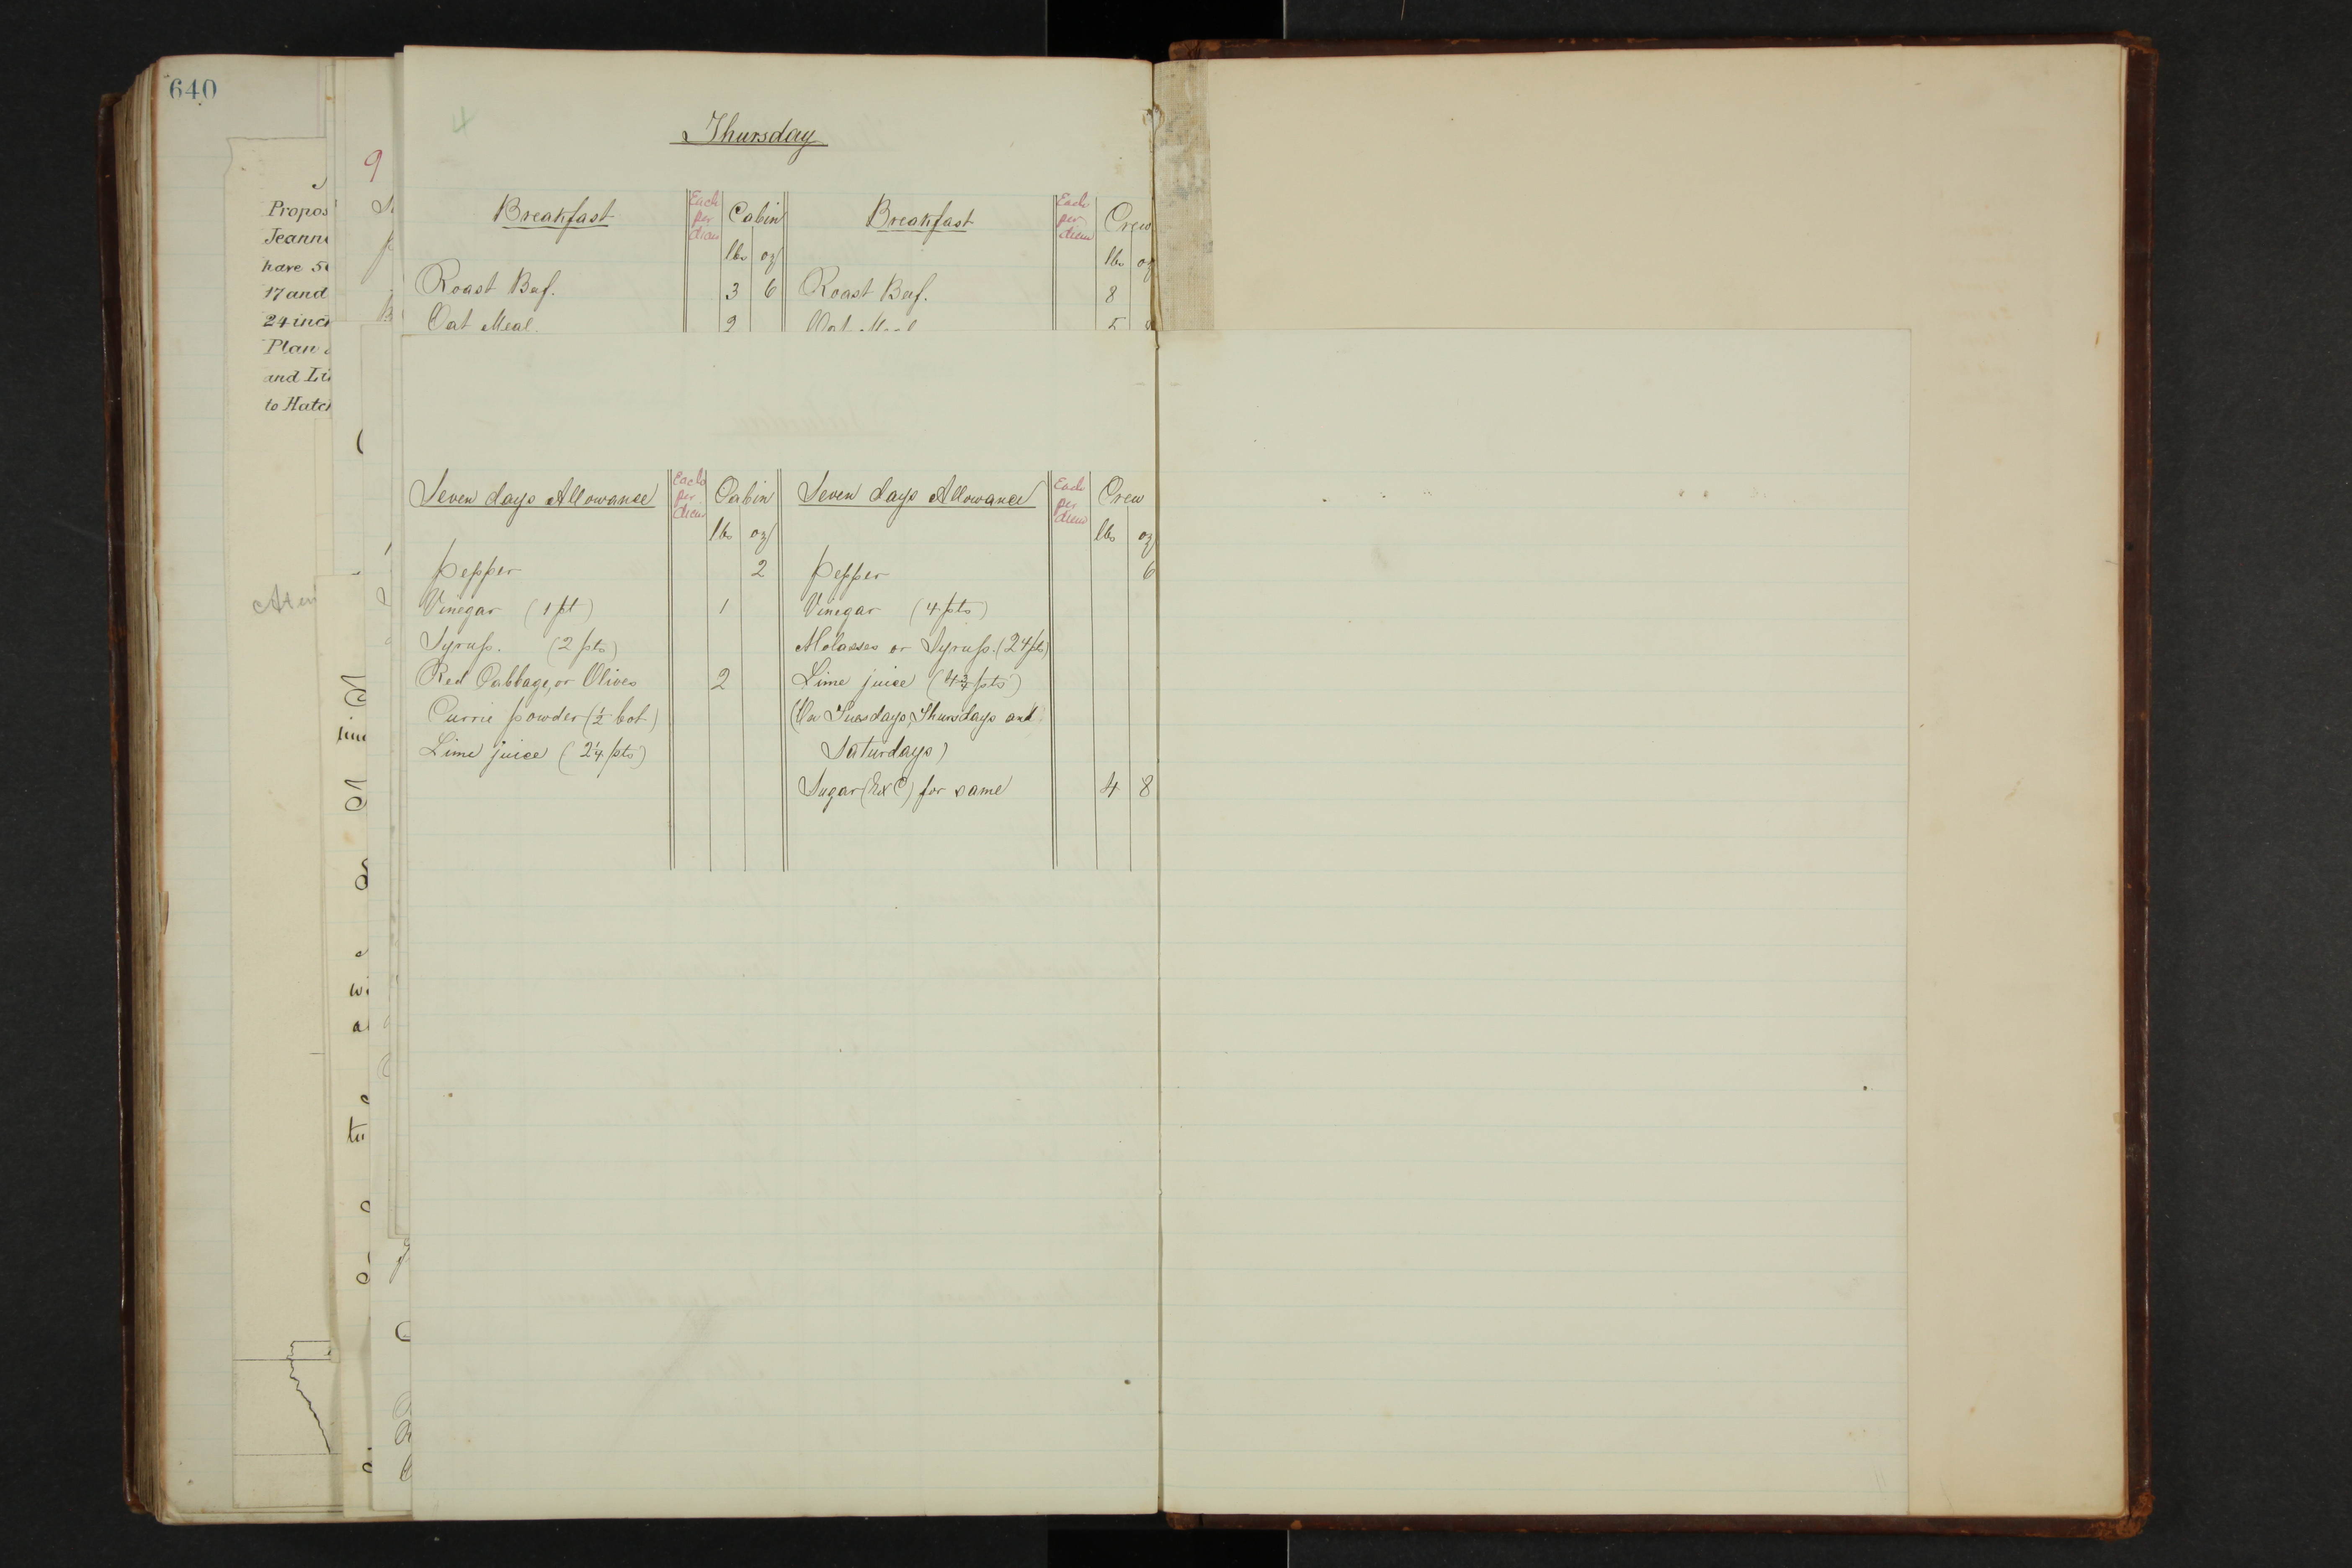 640
Propos
Jeann
have 5
17 and
24 inc
Plan
and Li
to Hatc
9
4
Thursday
Breakfast Each per diem Cabin Breakfast Each per diem Crew
lbs oz lbs oz
Roast Beef. 3 6 Roast Beef. 8
Oat Meal. 2 Oat Meal 5
Seven days Allowance Each per diem Cabin Seven days Allowance Each per diem Crew
lbs oz lbs oz
Pepper 2 Pepper 6
Vinegar (1 pt) 1 Vinegar (4 pts)
Syrup. (2 pts) Molasses or Syrup. (24 pts)
Red Cabbage, or Olives 2 Lime juice (4 3/4 pts)
Currie powder (1/2 bot) (On Tuesdays, Thursdays and
Lime juice (2 1/4 pts) Saturdays)
Sugar (Ex C) for same 4 8